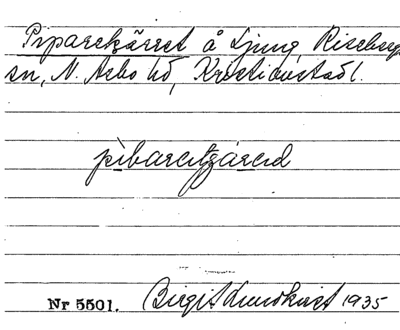 Piparekärret å Ljung, Riseberga
sn, N. Åsbo hd, Kristianstads l.
pibareςärəd
Nr 5501. Birgit Lundkvist 1935